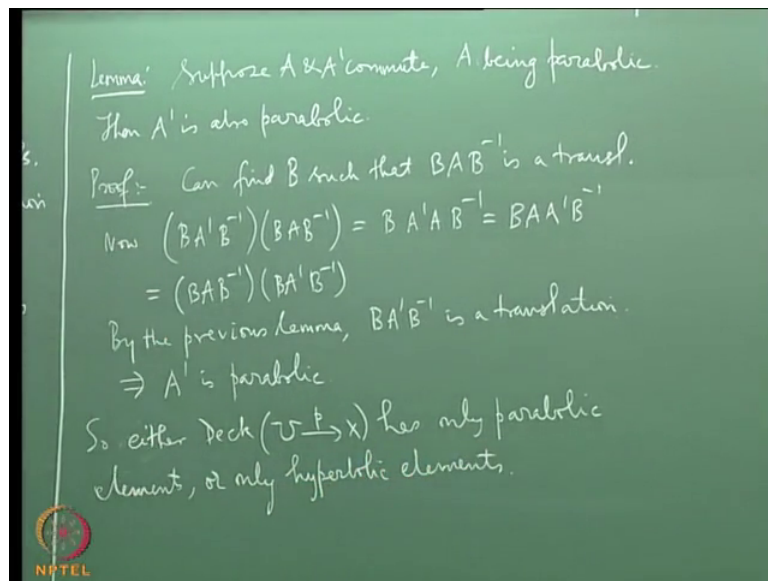 Lemma: Suppose A & A' commute, A being parabolic.
Then A' is also parabolic.
Proof:- Can find B such that BAB⁻¹ is a transl.
Now (BA'B⁻¹)(BAB⁻¹) = BA'AB⁻¹ = BAA'B⁻¹
= (BAB⁻¹)(BA'B⁻¹)
By the previous lemma, BA'B⁻¹ is a translation.
⇒ A' is parabolic.
So either Deck(U →ᵖ X) has only parabolic
elements, or only hyperbolic elements.
NPTEL